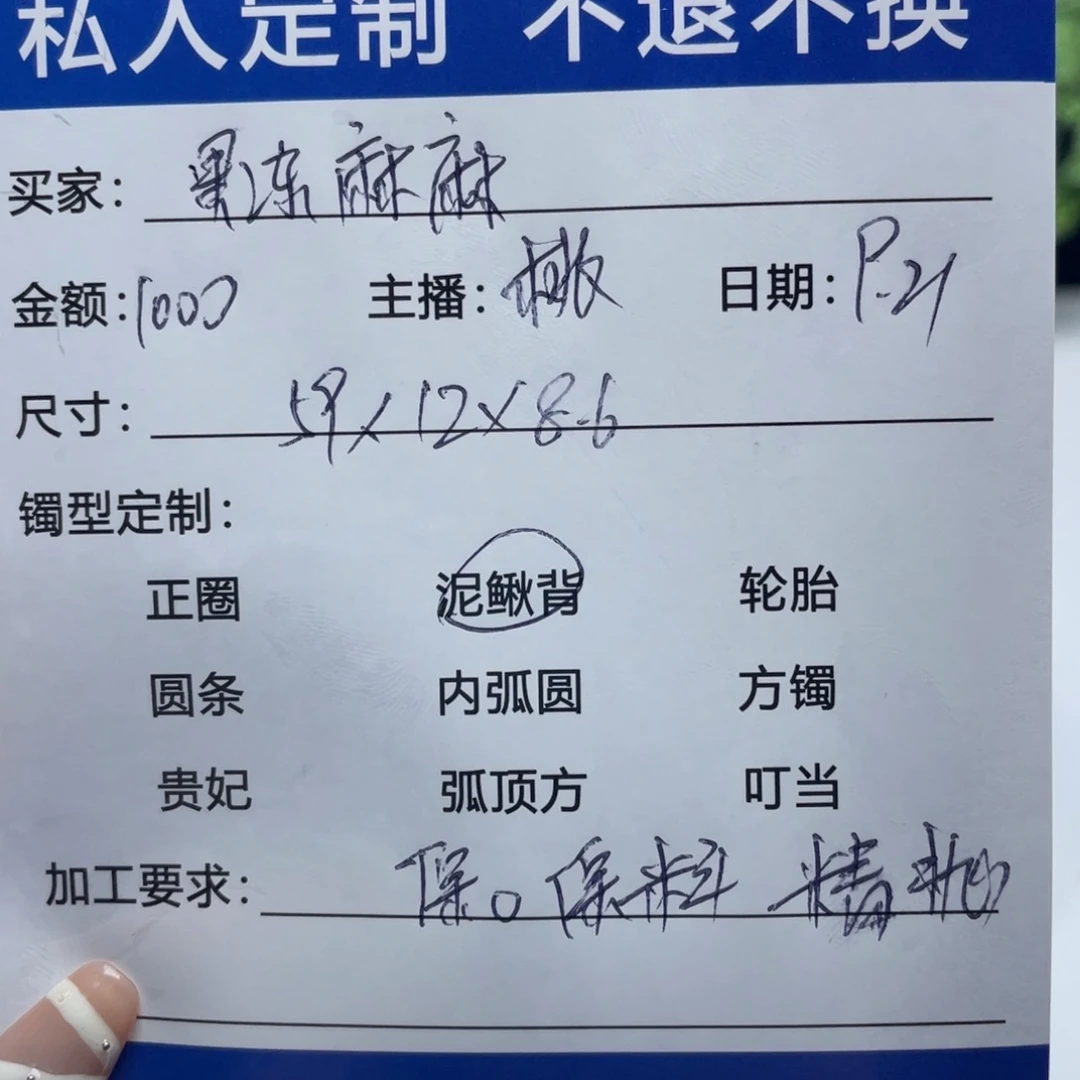 私人定制 不退不换
买家: 果冻麻麻
金额:1000 主播: 日期:
尺寸: 59×12×8.6
镯型定制:
正圈 泥鳅背 轮胎
圆条 内弧圆 方镯
贵妃 弧顶方 叮当
加工要求: 保。保料 精抛